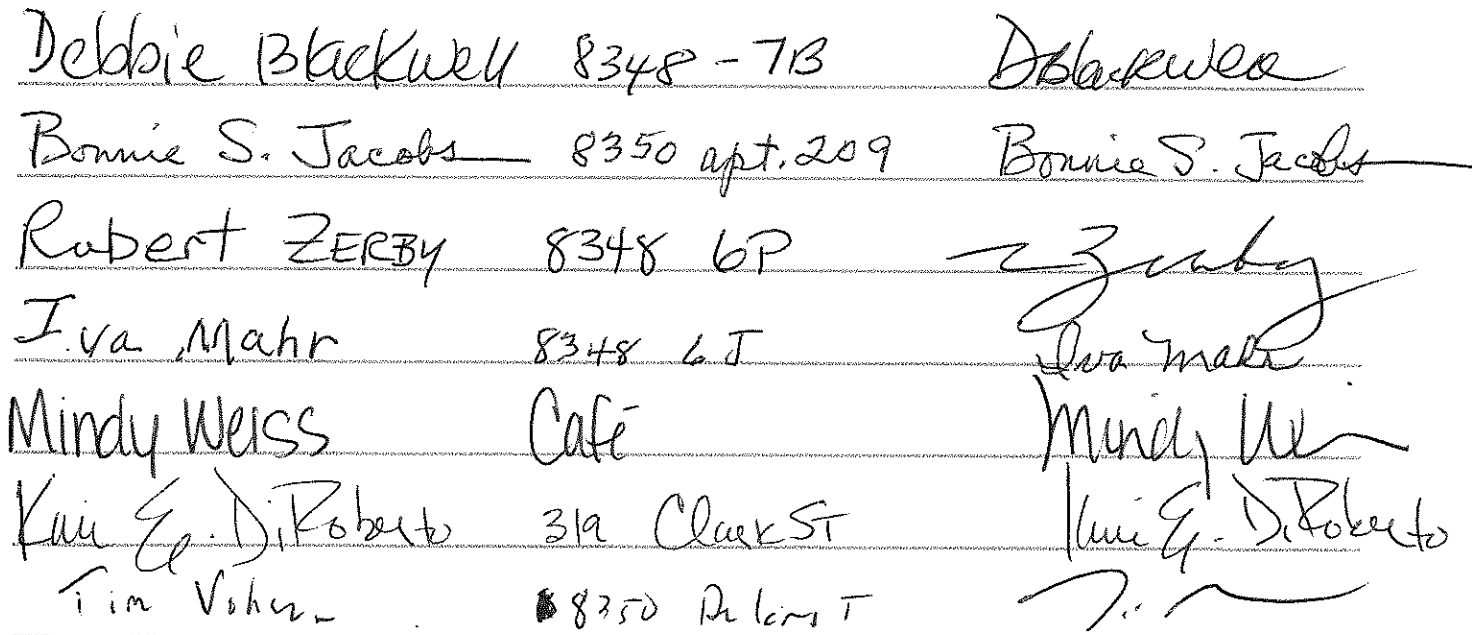 Debbie Blackwell 8348 - 7B DBlackwell
Bonnie S. Jacobs 8350 apt. 209 Bonnie S. Jacobs
Robert ZERBY 8348 6P Zerby
Iva Mahr 8348 6J Iva Mahr
Mindy Weiss Café Mindy
E. DiRoberto 319 Clark ST E. DiRoberto
Tim 8350